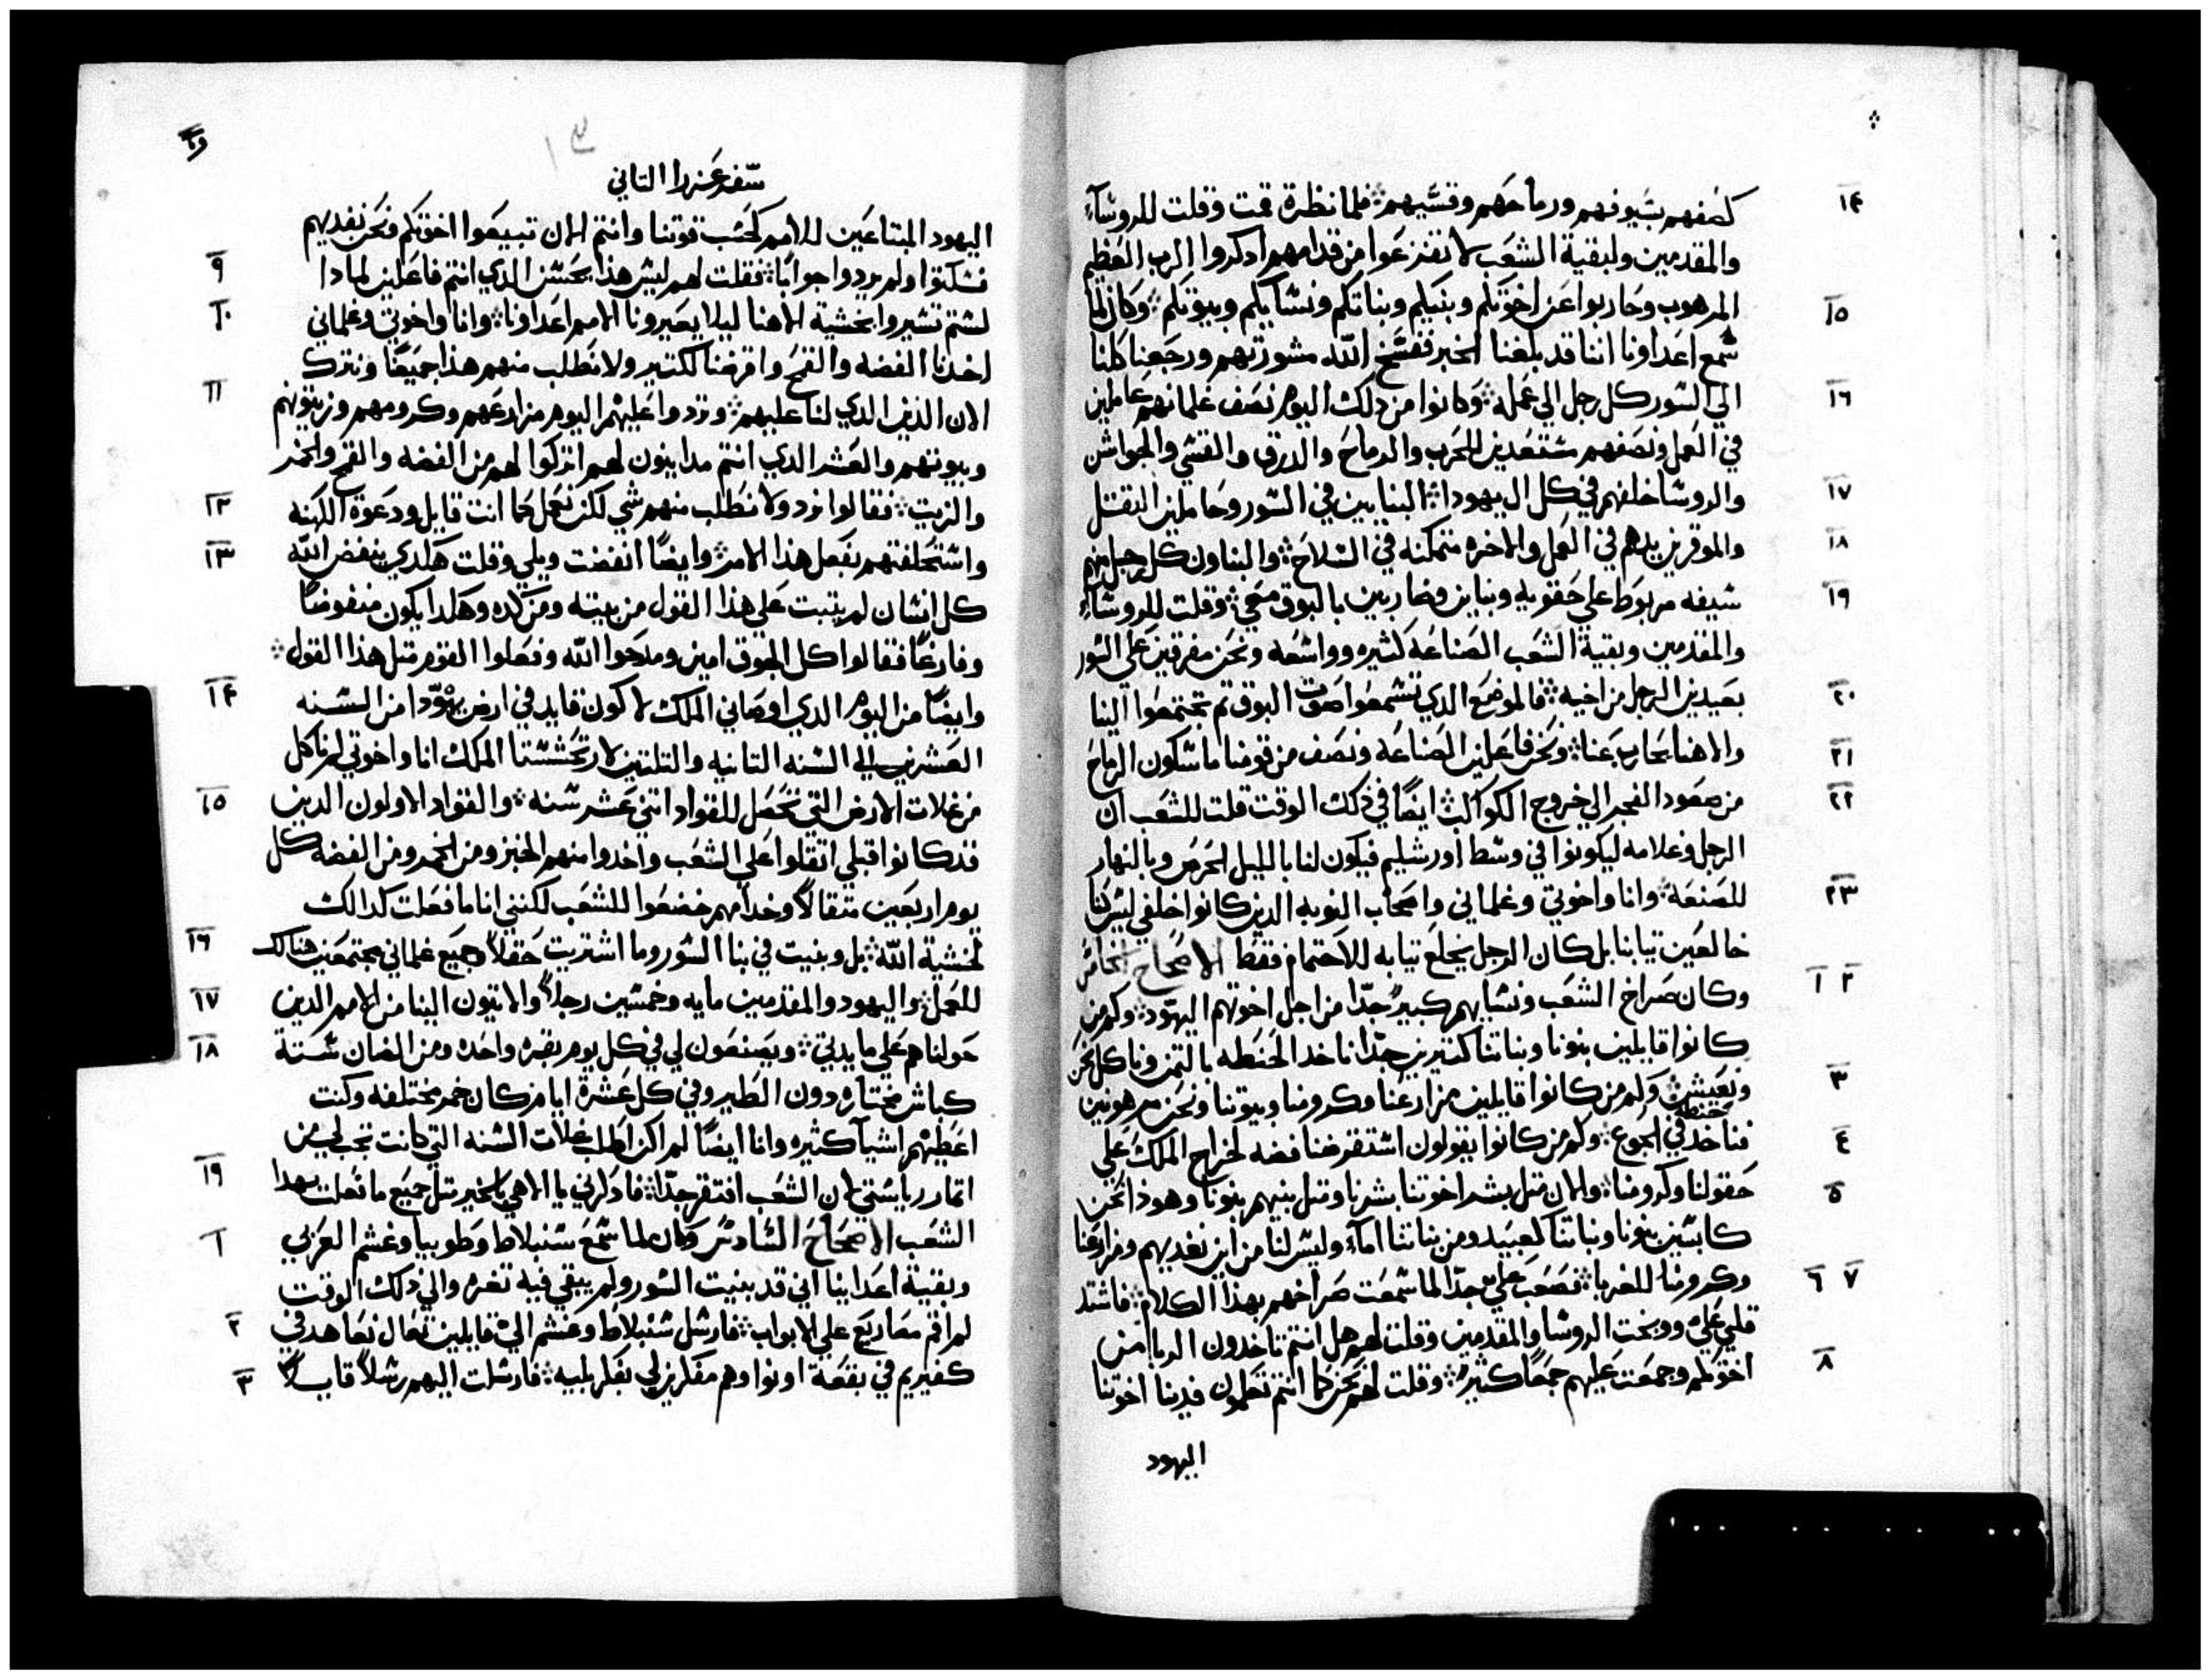 ١٤ كصفهم بسيوفهم ورماحهم وقسيهم فلما نظرة قمت وقلت للروسآء
والمقدمين ولبقية الشعب لا تفزعوا من قدامهم ادكروا الرب العظيم
١٥ المرهوب وحاربوا عن اخوتكم وبنيكم وبناتكم ونسايكم وبيوتكم وكان لما
سمع اعداونا اننا قد بلغنا الخبر ففسخ الله مشورتهم ورجعنا كلنا
١٦ الي السور كل رجل الي عمله وكانوا من دلك اليوم نصف غلمانهم عاملين
في العمل ونصفهم مستعدين للحرب والرماح والدرق والقسي والجواشن
١٧ والروسا خلفهم في كل ال يهودا البنايين في السور وحاملين التقل
١٨ والموقرين يدهم في العمل والاخره متمكنه في السلاح والبناون كل رجل منهم
١٩ سيفه مربوط علي حقويه وبناين وضاربين بالبوق معي وقلت للروسآء
والمقدمين وبقية الشعب الصناعه كثيره وواسعه ونحن مفرقين علي السور
٢٠ بعيدين الرجل من اخيه فالموضع الدي تسمعوا صوت البوق تم تجتمعوا الينا
٢١ والاهنا يحارب عنا ونحن فاعلين الصناعه ونصف من قومنا ماسكون الرماح
٢٢ من صعود الفجر الي خروج الكواكب ايضا في دلك الوقت قلت للشعب ان
الرجل وغلامه ليكونوا في وسط اورشليم فيكون لنا بالليل الحرس وبالنهار
٢٣ للصنعه وانا واخوتي وغلماني واصحاب النوبه الدين كانوا خلفي ليس كنا
خالعين تيابنا بل كان الرجل يخلع تيابه للاحتمام فقط الاصحاح الخامس
١ ٢ وكان صراخ الشعب ونسايهم كبير جدا من اجل اخوتهم اليهود وكم من
كانوا قايلين بنونا وبناتنا كتيرين جدا ناخد الحنطه بالتمن وناكل نحن
٣ ونعيش وكم من كانوا قايلين مزارعنا وكرومنا وبيوتنا ونحن مرهونين
٤ فناخد حنطه في الجوع وكم من كانوا يقولون استقرضنا فضه لخراج الملك علي
٥ حقولنا وكرومنا والان متل بشر اخوتنا بشرنا ومتل بنيهم بنونا وهودا نحن
كابسين بنونا وبناتنا كعبيد ومن بناتنا امآء وليس لنا من اين نفديهم ومزارعنا
٦ ٧ وكرومنا للغربا فصعب علي جدا لما سمعت صراخهم بهدا الكلام فاشتد
قلبي علي ووبخت الروسا والمقدمين وقلت لهم هل انتم تاخدون الربا من
٨ اخوتكم وجمعت عليهم جمعا كثير وقلت لهم نحن كما انتم تعلمون فدينا اخوتنا
اليهود
سفر عزرا التاني
اليهود المبتاعين للامم كحسب قوتنا وانتم الان تبيعوا اخوتكم فنحن نفديهم
٩ فسكتوا ولم يردوا جوابا فقلت لهم ليس هذا بحسن الدي انتم فاعلين لمادا
١٠ لستم تسيروا بخشية الاهنا ليلا يعيرونا الامم اعداونا وانا واخوتي وغلماني
اخدنا الفضه والقمح واقرضنا لكتير ولا نطلب منهم هذا جميعا ونترك
١١ الان الدين الدي لنا عليهم وتردوا عليهم اليوم مزارعهم وكرومهم وزيتونهم
وبيوتهم والعشر الدي انتم مداينون لهم اتركوا لهم من الفضه والقمح والخمر
١٢ والزيت فقالوا نرد ولا نطلب منهم شي لكن نعمل كما انت قايل ودعوة الكهنه
١٣ واستحلفتهم بفعل هذا الامر وايضا انفضت ويلي وقلت هكدي ينفض الله
كل انسان لم يتبت علي هذا القول من بيته ومن كده وهكدا يكون منفوضا
وفارغا فقالوا كل الجوق امين ومدحوا الله وفعلوا القوم متل هذا القول
١٤ وايضا من اليوم الدي اوصاني الملك لاكون قايد في ارض يهودا من السنه
العشرين الي السنه التانيه والتلتين لارتحشستا الملك انا واخوتي لم ناكل
١٥ من غلات الارض التي تحصل للقواد اتني عشر سنه والقواد الاولون الدين
قد كانوا قبلي اتقلوا علي الشعب واخدوا منهم الخبز ومن الخمر ومن الفضه كل
يوم اربعين متقالا وخدامهم خضعوا للشعب لكنني انا ما فعلت كدالك
١٦ لخشية الله بل وبنيت في بنا السور وما اشتريت حقلا وجميع غلماني مجتمعين هنالك
١٧ للعمل واليهود والمقدمين مايه وخمسين رجلا والاتيون الينا من الامم الدين
١٨ حولنا هم علي مايدتي ويصنعون لي في كل يوم بقره واحده ومن الضان ستة
كباش مختاره دون الطير وفي كل عشرة ايام كان خمر مختلفه وكنت
اعطيهم اشيآ كثيره وانا ايضا لم اكن اطلب غلات السنه التي كانت تجب لي من
١٩ اتمار رياستي لان الشعب افتقر جدا فادكرني يا الاهي بالخير متل جميع ما فعلت بهدا
١ الشعب الاصحاح السادس وكان لما سمع سنبلاط وطوبيا وغشم العربي
وبقية اعداينا اني قد بنيت السور ولم يبقي فيه تغره والي دلك الوقت
٢ لم اقم مصاريع علي الابواب فارسل سنبلاط وغشم الي قايلين تعال نعاهد في
٣ كفيريم في بقعة اونوا وهم مفكرين لي بفكر بليه فارسلت اليهم رسلا قايلا